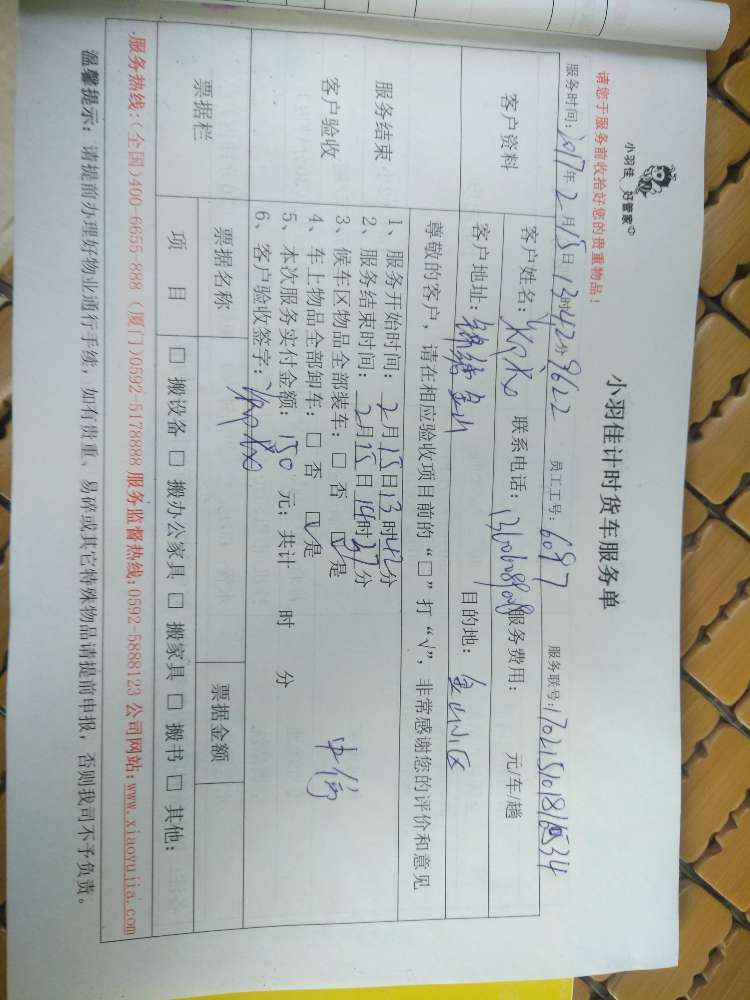 小羽佳 好管家
小羽佳计时货车服务单
请您于服务前收拾好您的贵重物品！
服务时间：2017年2月15日13时42分 9622 员工工号：6097 服务联号：
客户资料
客户姓名： 联系电话： 服务费用： 元/车/趟
客户地址：锦绣金山 目的地：金山小区
服务结束
客户验收
尊敬的客户，请在相应验收项目前的“□”打“√”，非常感谢您的评价和意见
1、服务开始时间：2月15日13时42分
2、服务结束时间：2月15日14时37分
3、候车区物品全部装车：□ 否 ☑是
4、车上物品全部卸车：□ 否 ☑是
5、本次服务实付金额：150 元；共计 时 分
6、客户验收签字：
票据栏
票据名称 票据金额
项 目 □ 搬设备 □ 搬办公家具 □ 搬家具 □ 搬书 □ 其他：
服务热线：(全国)400-6655-888 (厦门)0592-5178888 服务监督热线：0592-5888123 公司网站：www.xiaoyujia.com
温馨提示：请提前办理好物业通行手续，如有贵重、易碎或其它特殊物品请提前申报，否则我司不予负责。